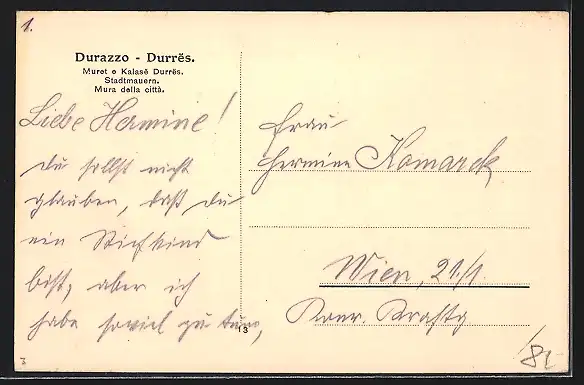 1.
Durazzo - Durrës.
Muret e Kalasë Durrës.
Stadtmauern.
Mura della città.
Liebe Hermine!
du sollst nicht
glauben, daß du
ein Stiefkind
bist, aber ich
habe soviel zu tun,
13
3
Frau
Hermine Komarek
Wien, 21/1.